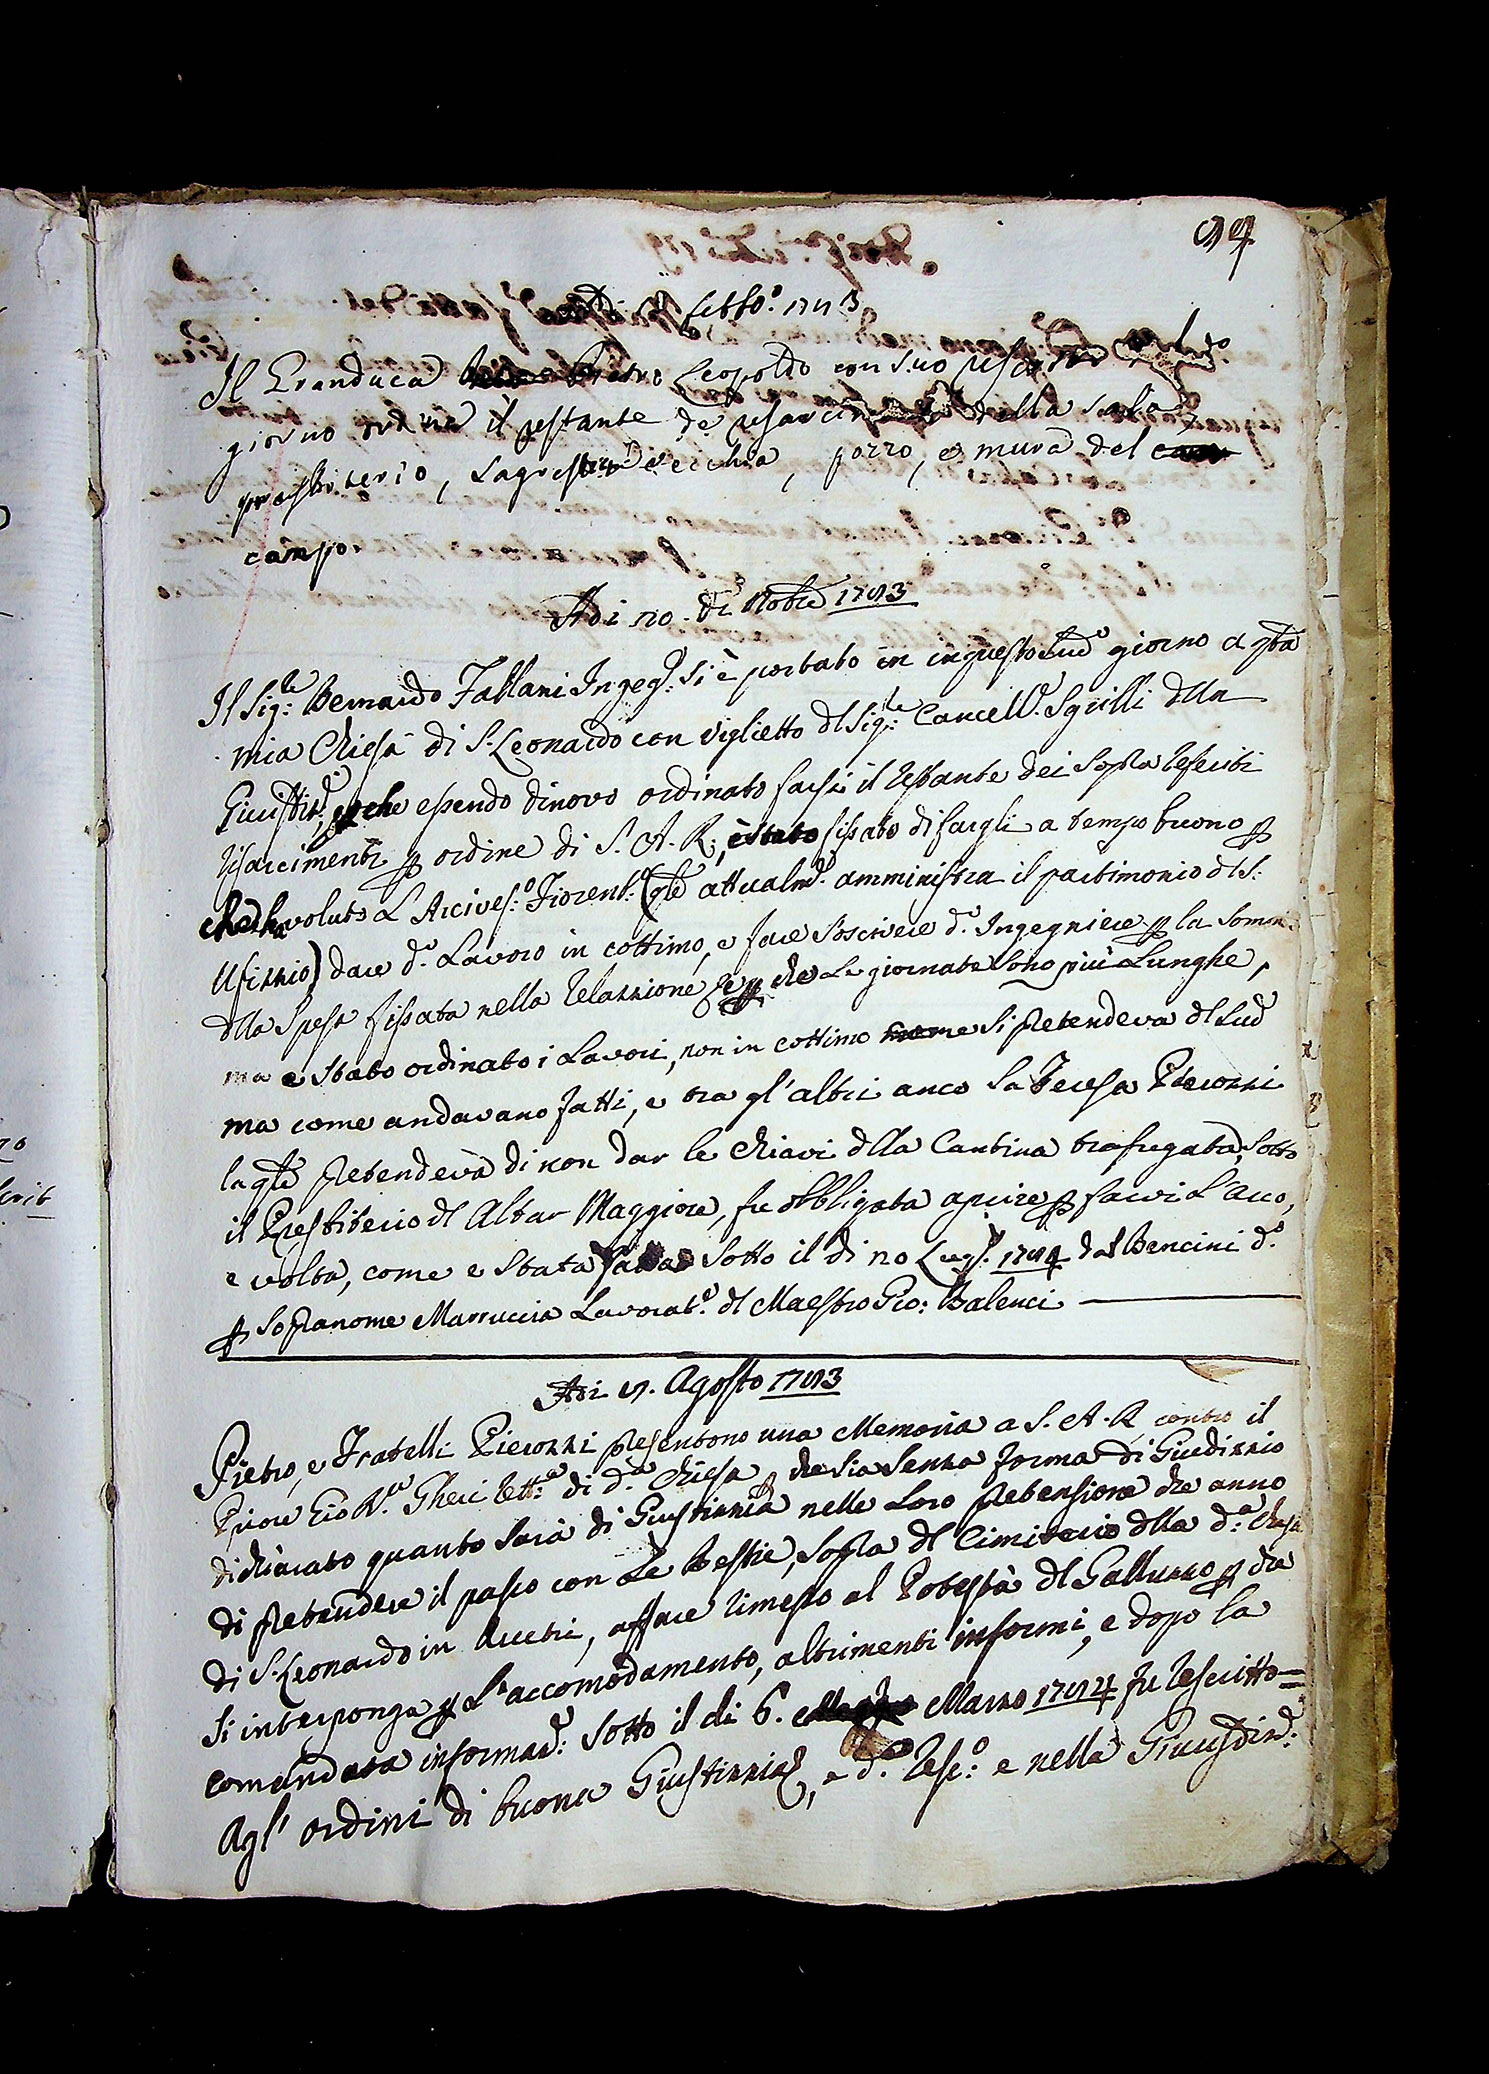 94
di Settbo. 1783
Il Granduca Pietro Leopoldo con suo
giorno ordina il restante de resarcim della sala
presbiterio, Sagrestia vecchia, pozzo, e mura del
campo
Adi 20. di Nobre 1783
Il Sig:re Bernardo Fallani Ingeg:re si è portato in in questo Sud.o giorno a qta
mia Chiesa di S. Leonardo con viglietto dl Sig:re Cancell.e Sgrilli dlla
Giurisdiz:, che essendo dinovo ordinato farsi il restante dei sopra rescriti
risarcimenti p ordine di S. A. R., è stato fissato di fargli a tempo buono p
che ha voluto L'Arcives:o Fiorent: (qle attualm.e amministra il partimonio dl S:
Ufizzio) dare d.o Lavoro in cottimo, e fare soscrivere d.o Ingegniere p la somma
dlla spesa fissata nella relazzione e p che Le giornate sono più Lunghe,
ma e stato ordinato i Lavori, non in cottimo come si pretendeva dl Sud.o
ma come andavano fatti, e tra gl'altri anco la Teresa Pierozzi
la qle pretendeva di non dar le chiavi dlla Cantina trafugata, sotto
il Presbiterio dl Altar Maggiore, fu obbligata aprire p farvi L'Arco,
e volta, come e stata fatta sotto il di 20 Lug.o 1784 dal Bencini d.o
p sopranome Marruccia Lavorat.e dl Maestro Gio: Balenci
Adi 9. Agosto 1783
Pietro, e Fratelli Pierozzi presentono una Memoria a S. A. R. contro il
Priore Gio Bta Gheri Rett:e di d.a Chiesa p che sia senza forma di Giudizzio
dichiarato quanto sarà di Giustizzia nelle Loro pretensione che anno
di pretendere il pasco con Le Bestie, sopra dl Cimiterio dlla d.a Chiesa
di S. Leonardo in Arcetri, affare rimesso al Potestà dl Galluzzo p che
si intreponga p L'accomodamento, altrimenti informi, e dopo la
comandata informaz.e: sotto il di 6. Marzo 1784 fu rescritto=
Agl'ordini di buona Giustizzia, e d.o Resc:o e nella Giurisdiz.e: